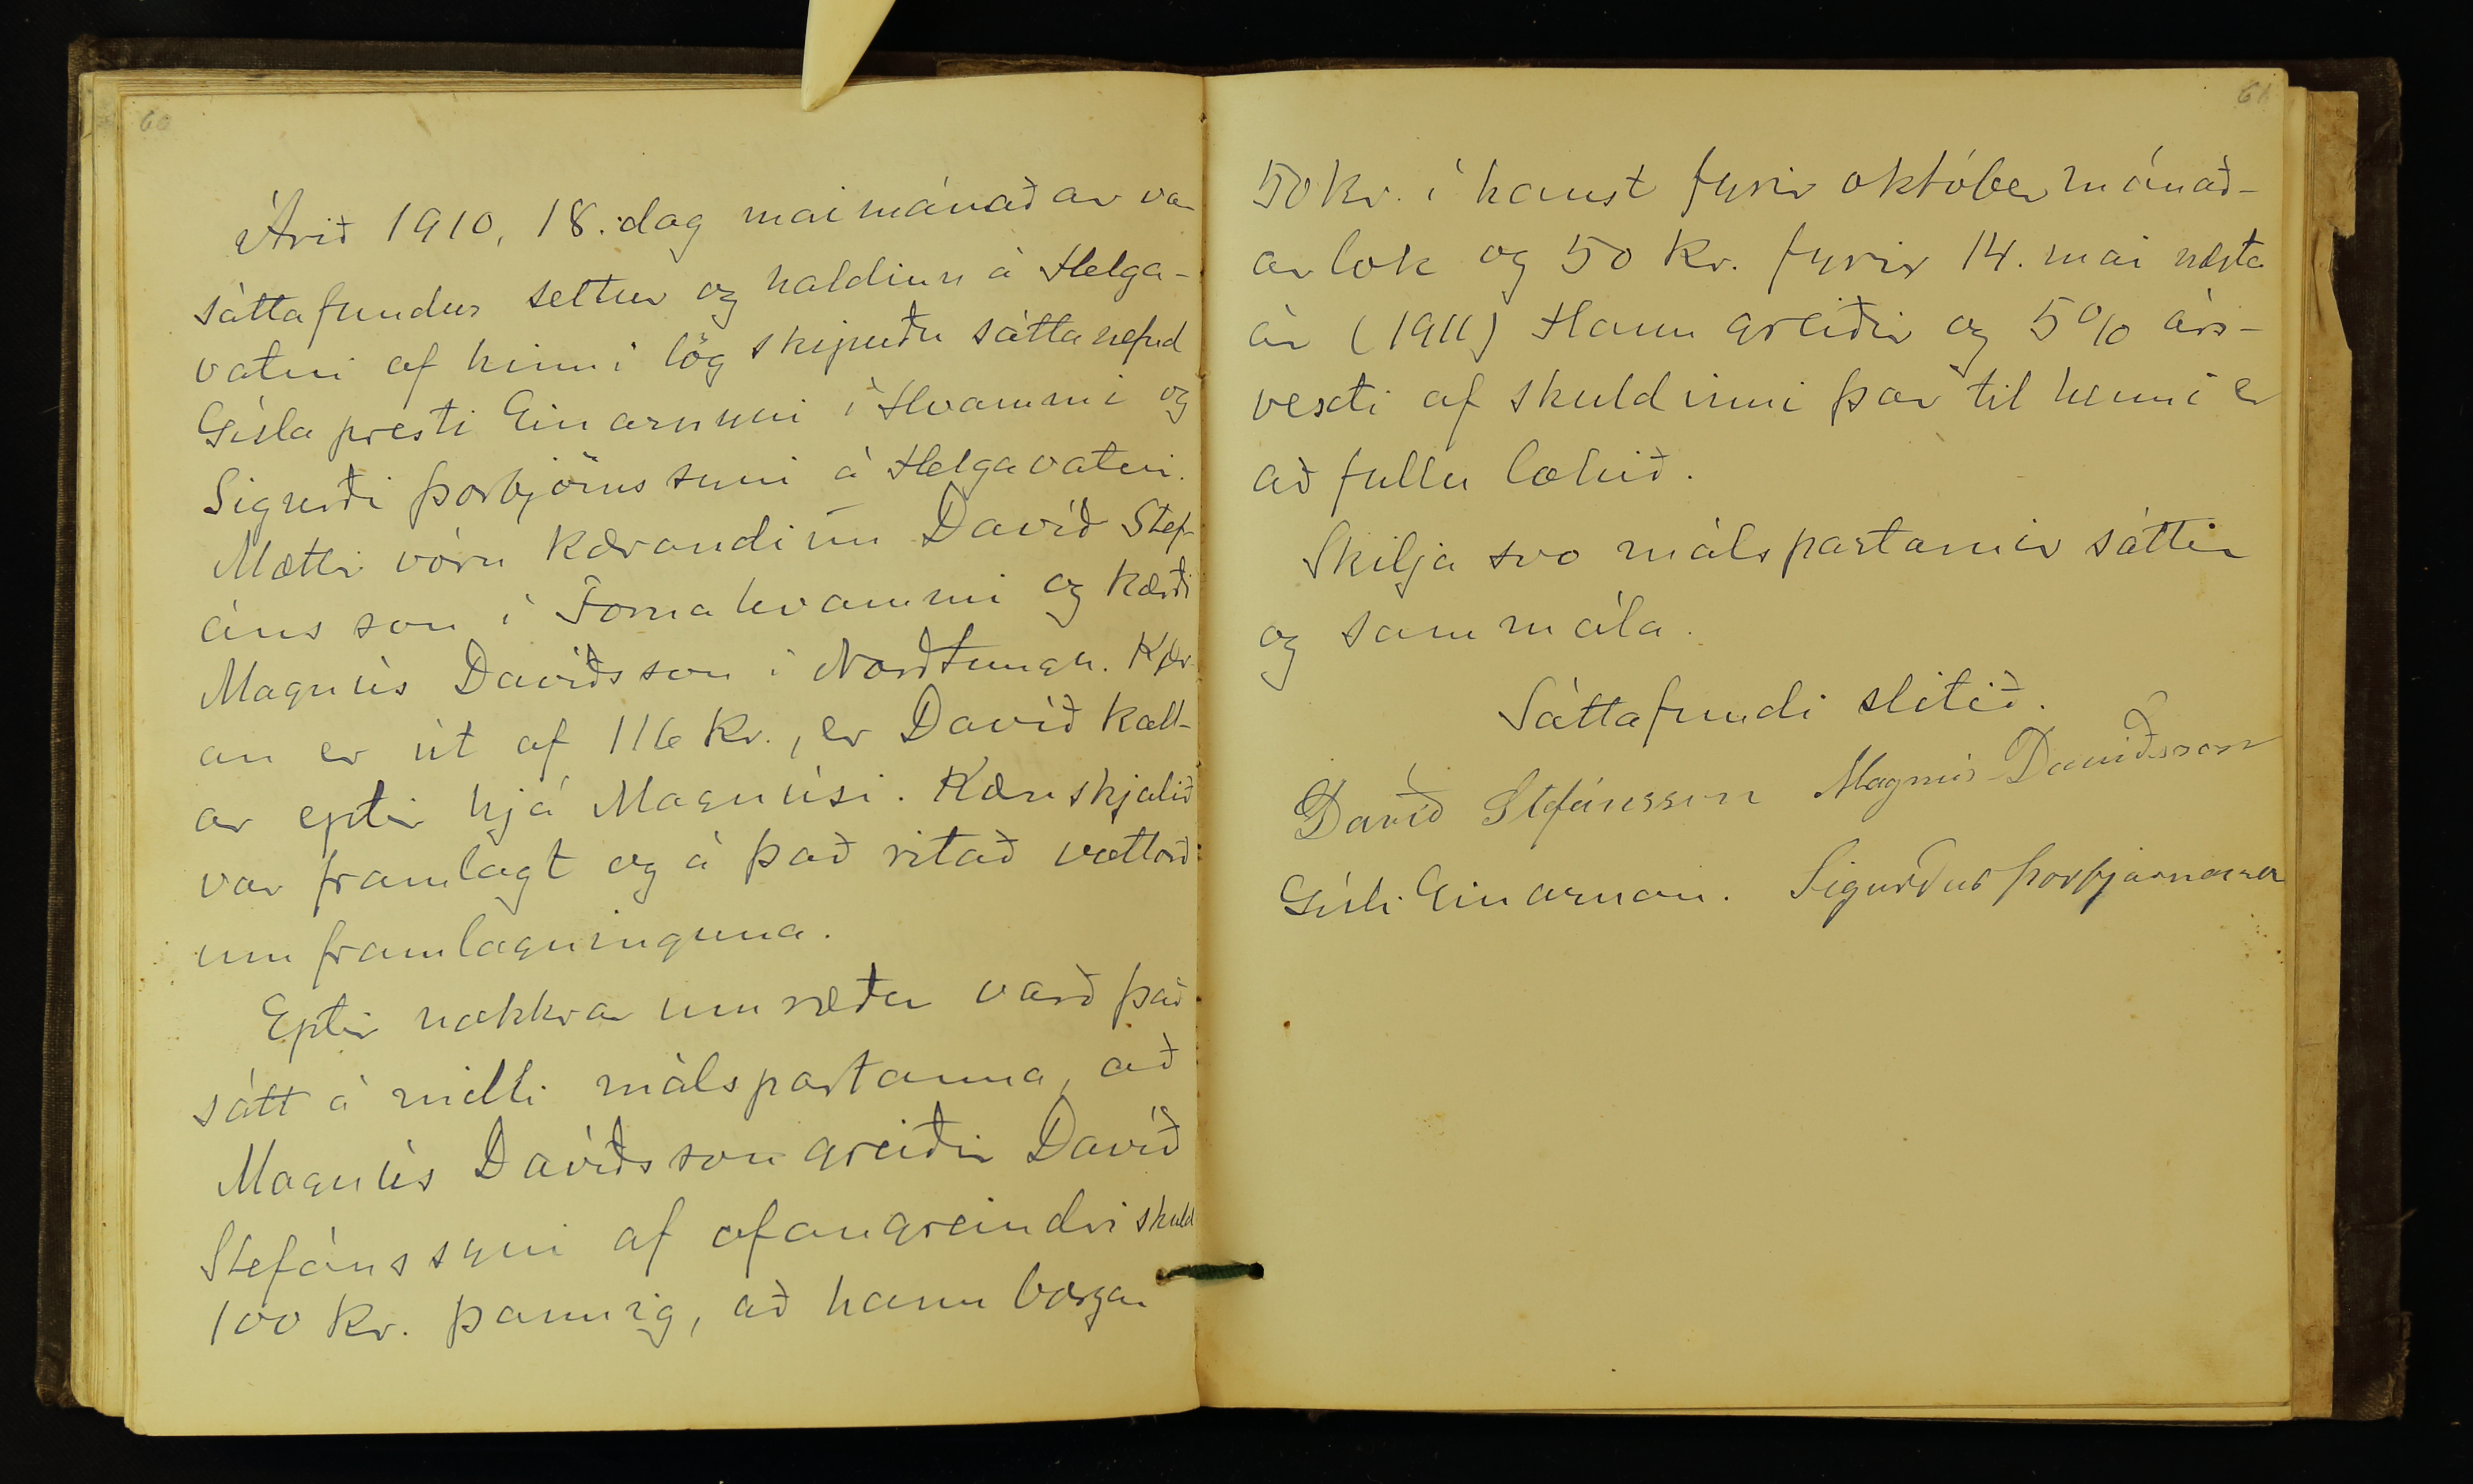 60
Árið 1910, 18. dag maimánaðar var
sáttafundur settur og haldinn á Helga-
vatni af hinni lögskipuðu sáttanefnd
Gísla presti Einarssyni í Hvammi og
Sigurði Þorbjörnssyni á Helgavatni.
Mættir vóru kærandinn Davíð Stef-
ánsson í Fornahvammi og kærði
Magnús Davíðsson í Norðtungu. Kær-
an er út af 116 Kr., er Davíð kall-
ar eptir hjá Magnúsi. Kæruskjalið
var framlagt og á það ritað vottorð
um framlagninguna.
Eptir nokkrar umræður varð það
sátt á milli málspartanna, að
Magnús Davíðsson greiðir Davíð
Stefánssyni af ofangreindri skuld
100 Kr. þannig, að hann borgar
61
50 Kr. í haust fyrir október mánað-
ar lok og 50 Kr. fyrir 14. mai næsta
ár (1911) Hann greiðir og 5% árs-
vexti af skuldinni þar til henni er
að fullu lokið.
Skilja svo málspartarnir sáttir
og sammála.
Sáttafundi slitið.
Davíð Stefánsson Magnús Davíðsson
Gísli Einarsson. Sigurður Þorbjörnsson